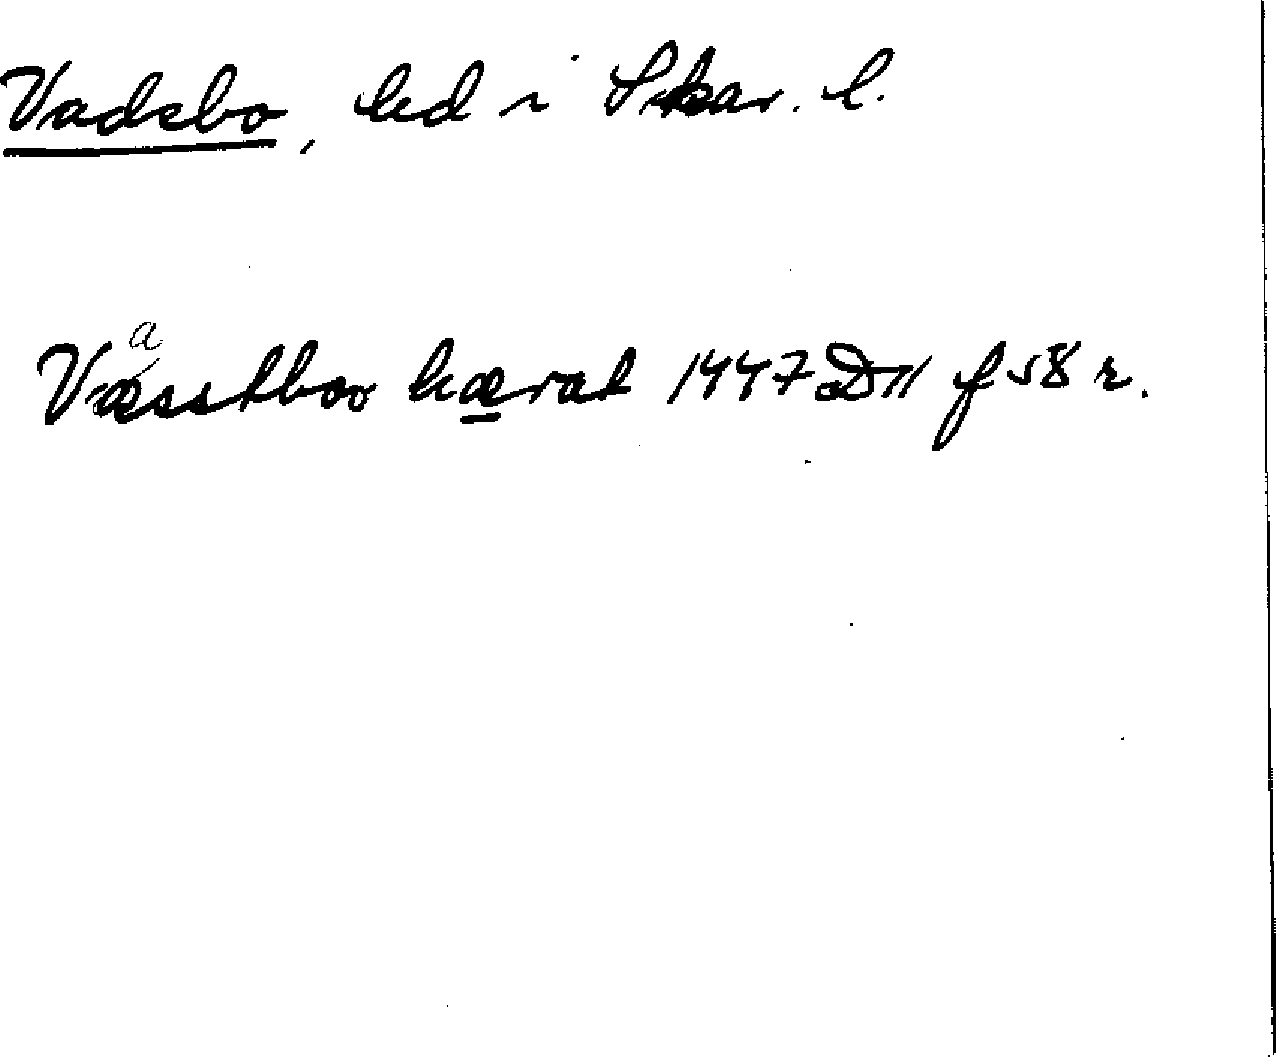 Vadsbo, hd i Skar. l.
a
Væsstboo hærat 1447 D11 f 58 r.